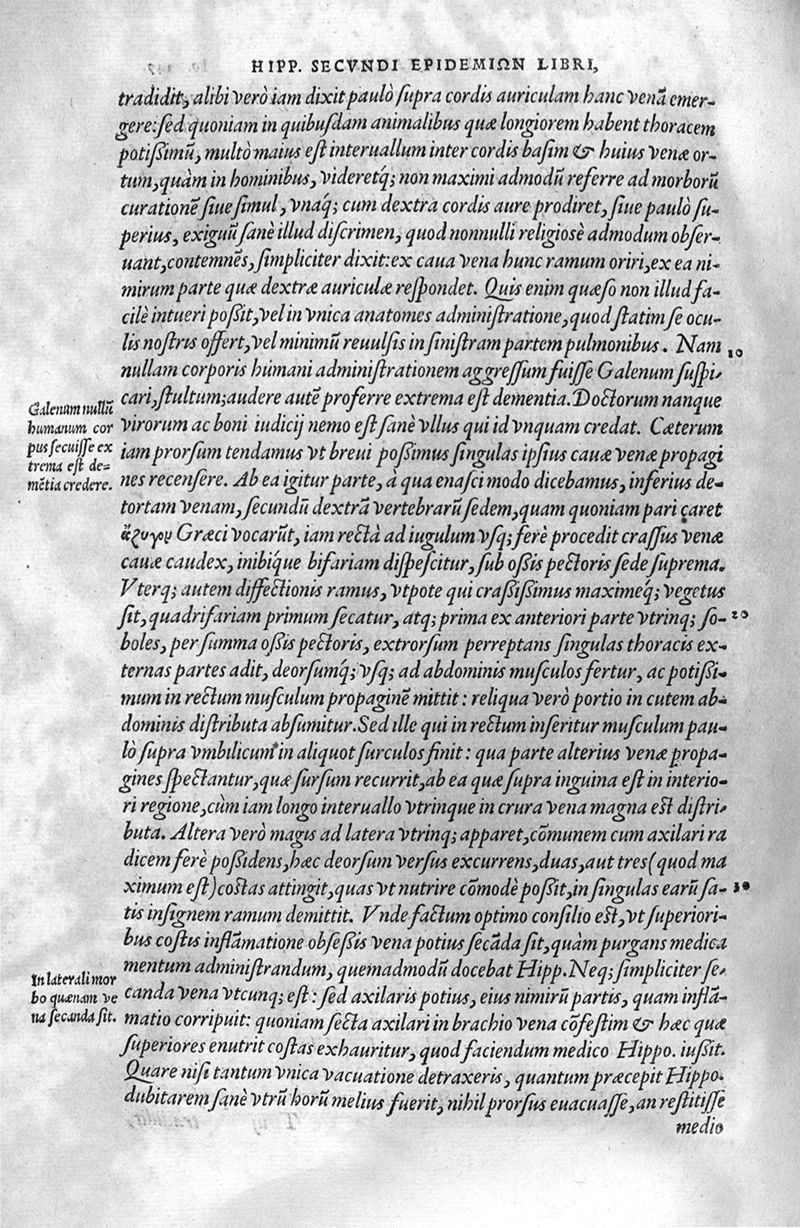 HIPP. SECVNDI EPIDEMIΩN LIBRI,
tradidit, alibi verò iam dixit paulò ſupra cordis auriculam hanc venā emer-
gere: ſed quoniam in quibuſdam animalibus quæ longiorem habent thoracem
potißimū, multò maius eſt interuallum inter cordis baſim & huius venæ or-
tum, quàm in hominibus, videretq́; non maximi admodū referre ad morborū
curationē ſiue ſimul, vnaq́; cum dextra cordis aure prodiret, ſiue paulò ſu-
perius, exiguū ſanè illud diſcrimen, quod nonnulli religioſè admodum obſer-
uant, contemnēs, ſimpliciter dixit: ex caua vena hunc ramum oriri, ex ea ni-
mirum parte quæ dextræ auriculæ reſpondet. Quis enim quæſo non illud fa-
cilè intueri poßit, vel in vnica anatomes adminiſtratione, quod ſtatim ſe ocu-
lis noſtris offert, vel minimū reuulſis in ſiniſtram partem pulmonibus. Nam 10
nullam corporis humani adminiſtrationem aggreſſum fuiſſe Galenum ſuſpi-
cari, ſtultum; audere autē proferre extrema eſt dementia. Doctorum nanque
virorum ac boni iudicij nemo eſt ſanè vllus qui id vnquam credat. Cæterum
iam prorſum tendamus vt breui poßimus ſingulas ipſius cauæ venæ propagi
nes recenſere. Ab ea igitur parte, à qua enaſci modo dicebamus, inferius de-
tortam venam, ſecundū dextrā vertebrarū ſedem, quam quoniam pari caret
ἄζυγον Græci vocarūt, iam rectà ad iugulum vſq; ferè procedit craſſus venæ
cauæ caudex, inibíque bifariam diſpeſcitur, ſub oßis pectoris ſede ſuprema.
Vterq; autem diſſectionis ramus, vtpote qui craßißimus maximeq́; vegetus
ſit, quadrifariam primum ſecatur, atq; prima ex anteriori parte vtrinq; ſo- 20
boles, per ſumma oßis pectoris, extrorſum perreptans ſingulas thoracis ex-
ternas partes adit, deorſumq́; vſq; ad abdominis muſculos fertur, ac potißi-
mum in rectum muſculum propaginē mittit: reliqua verò portio in cutem ab-
dominis diſtributa abſumitur. Sed ille qui in rectum inſeritur muſculum pau-
lò ſupra vmbilicum in aliquot ſurculos finit: qua parte alterius venæ propa-
gines ſpectantur, quæ ſurſum recurrit, ab ea quæ ſupra inguina eſt in interio-
ri regione, cùm iam longo interuallo vtrinque in crura vena magna eſt diſtri-
buta. Altera verò magis ad latera vtrinq; apparet, cōmunem cum axilari ra
dicem ferè poßidens, hæc deorſum verſus excurrens, duas, aut tres (quod ma
ximum eſt) coſtas attingit, quas vt nutrire cōmodè poßit, in ſingulas earū ſa- 30
tis inſignem ramum demittit. Vnde factum optimo conſilio eſt, vt ſuperiori-
bus coſtis inflāmatione obſeßis vena potius ſecāda ſit, quàm purgans medica
mentum adminiſtrandum, quemadmodū docebat Hipp. Neq; ſimpliciter ſe-
canda vena vtcunq; eſt: ſed axilaris potius, eius nimirū partis, quam inflā-
matio corripuit: quoniam ſecta axilari in brachio vena cōfeſtim & hæc quæ
ſuperiores enutrit coſtas exhauritur, quod faciendum medico Hippo. iußit.
Quare niſi tantum vnica vacuatione detraxeris, quantum præcepit Hippo.
dubitarem ſanè vtrū horū melius fuerit, nihil prorſus euacuaſſe, an reſtitiſſe
medio
Galenum nullū
humanum cor
pus ſecuiſſe ex
trema eſt de-
mētia credere.
In laterali mor
bo quænam ve
na ſecanda ſit.